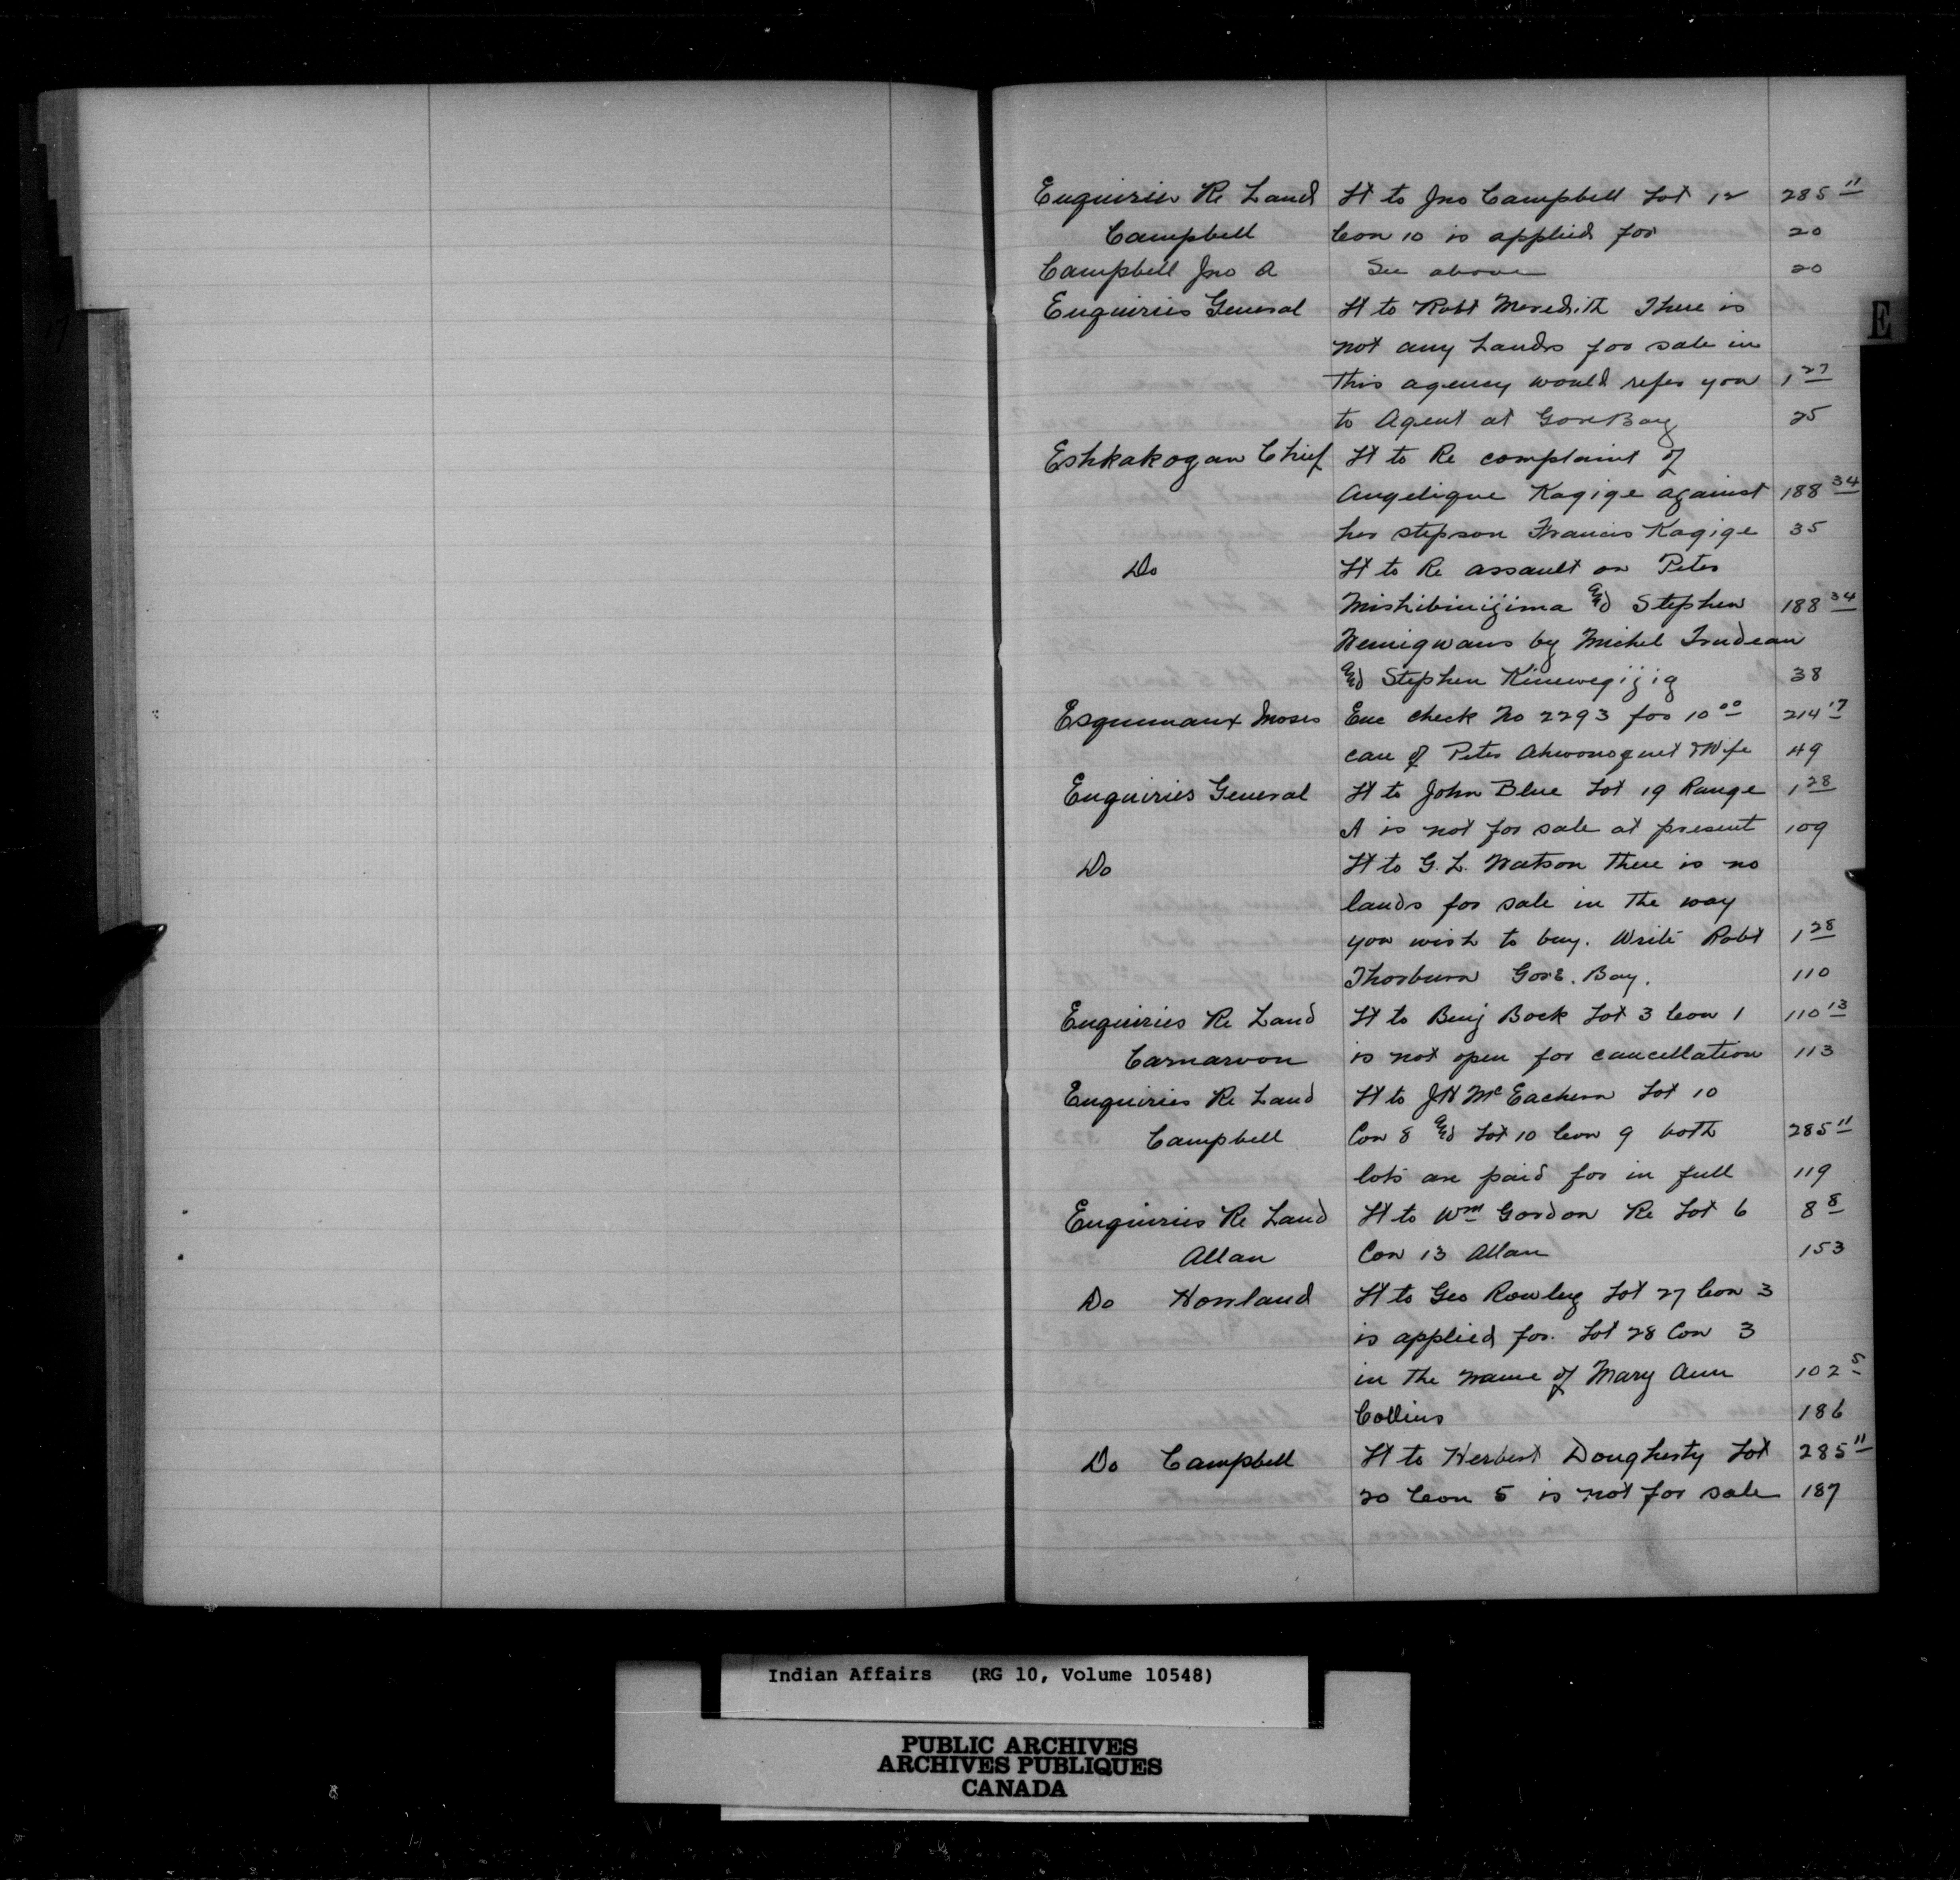 Enquiries Re Land Lt to Jno Campbell Lot 12 285 11
Campbell Con 10 is applied for 20
Campbell Jno A See above 20
Enquiries General Lt to Robt Meredith There is
not any Lands for sale in
this agency would refer you 1 27
to Agent at Gore Bay 25
Eshkakogan Chief Lt to Re complaint of
Angelique Kagige against 188 34
her stepson Francis Kagige 35
Do Lt to Re assault on Peter
Mishibinijima and Stephen 188 34
Wemigwans by Michel Trudeau
and Stephen Kinewegijig 38
Esquimaux Moses Enc check No 2293 for 10 00 214 17
care of Peter Ahwonoquet & Wife 49
Enquiries General Lt to John Blue Lot 19 Range 1 28
A is not for sale at present 109
Do Lt to G. L. Watson there is no
lands for sale in the way
you wish to buy. Write Robt 1 28
Thorburn Gore. Bay. 110
Enquiries Re Land Lt to Benj Bock Lot 3 Con 1 110 13
Carnarvon is not open for cancellation 113
Enquiries Re Land Lt to JH McEachern Lot 10
Campbell Con 8 and Lot 10 Con 9 both 285 11
lots are paid for in full 119
Enquiries Re Land Lt to Wm Gordon Re Lot 6 8 8
Allan Con 13 Allan 153
Do Howland Lt to Geo Rowley Lot 27 Con 3
is applied for. Lot 28 Con 3
in the name of Mary Ann 102 5
Collins 186
Do Campbell Lt to Herbert Dougherty Lot 285 11
20 Con 5 is not for sale 187
E
Indian Affairs (RG 10, Volume 10548)
PUBLIC ARCHIVES
ARCHIVES PUBLIQUES
CANADA